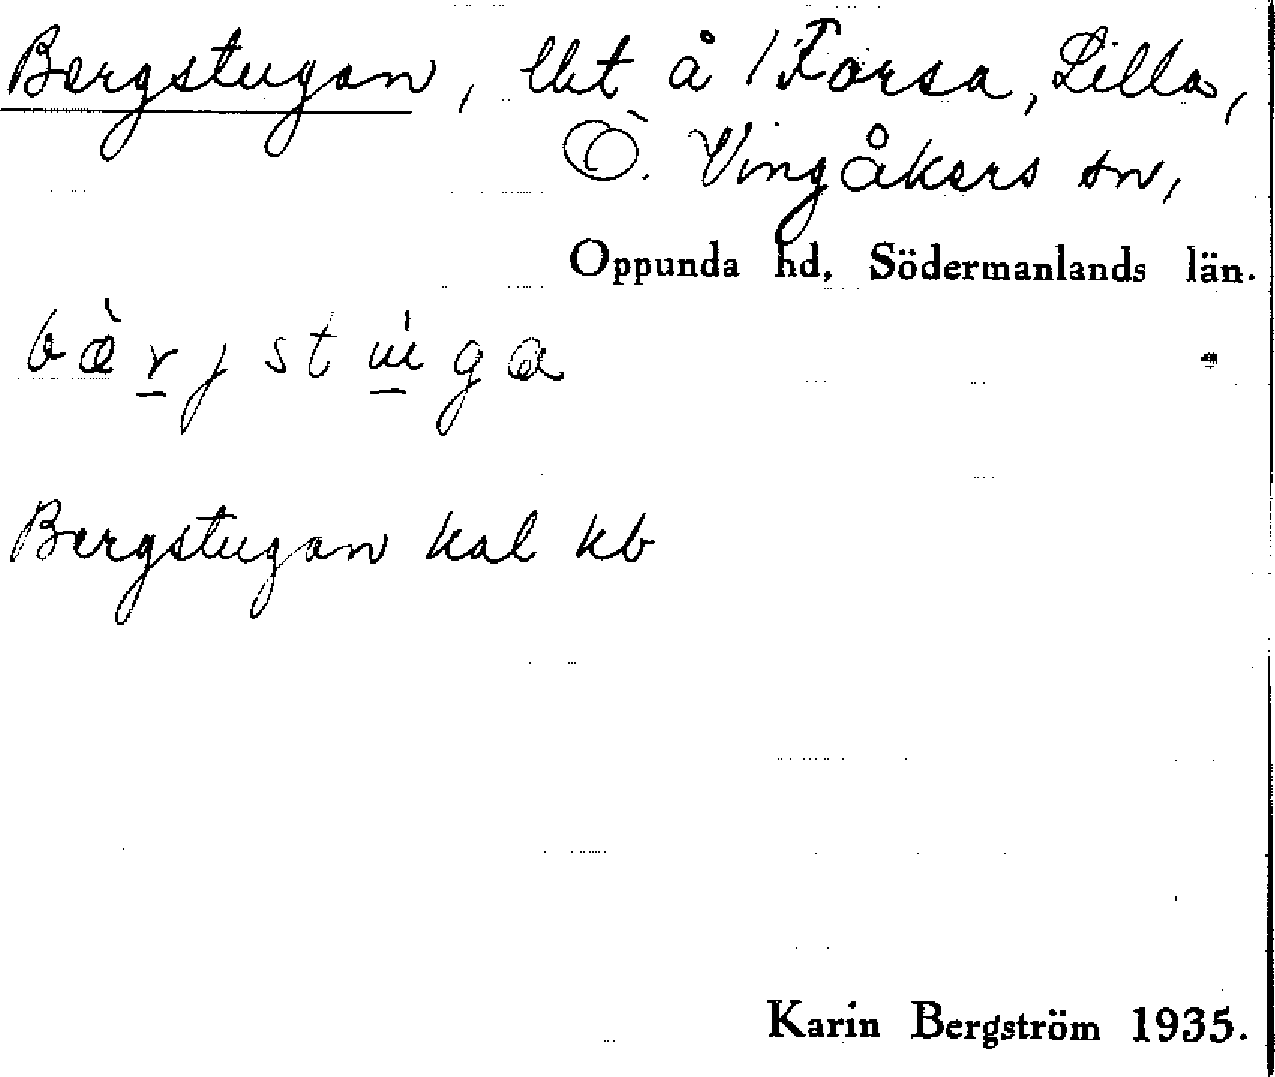 Bergstugan, lht å /Forsa, Lilla,
Ö. Vingåkers sn,
Oppunda hd, Södermanlands län.
bæ̀r̲jstu̲̍ga
Bergstugan kal kb
Karin Bergström 1935.